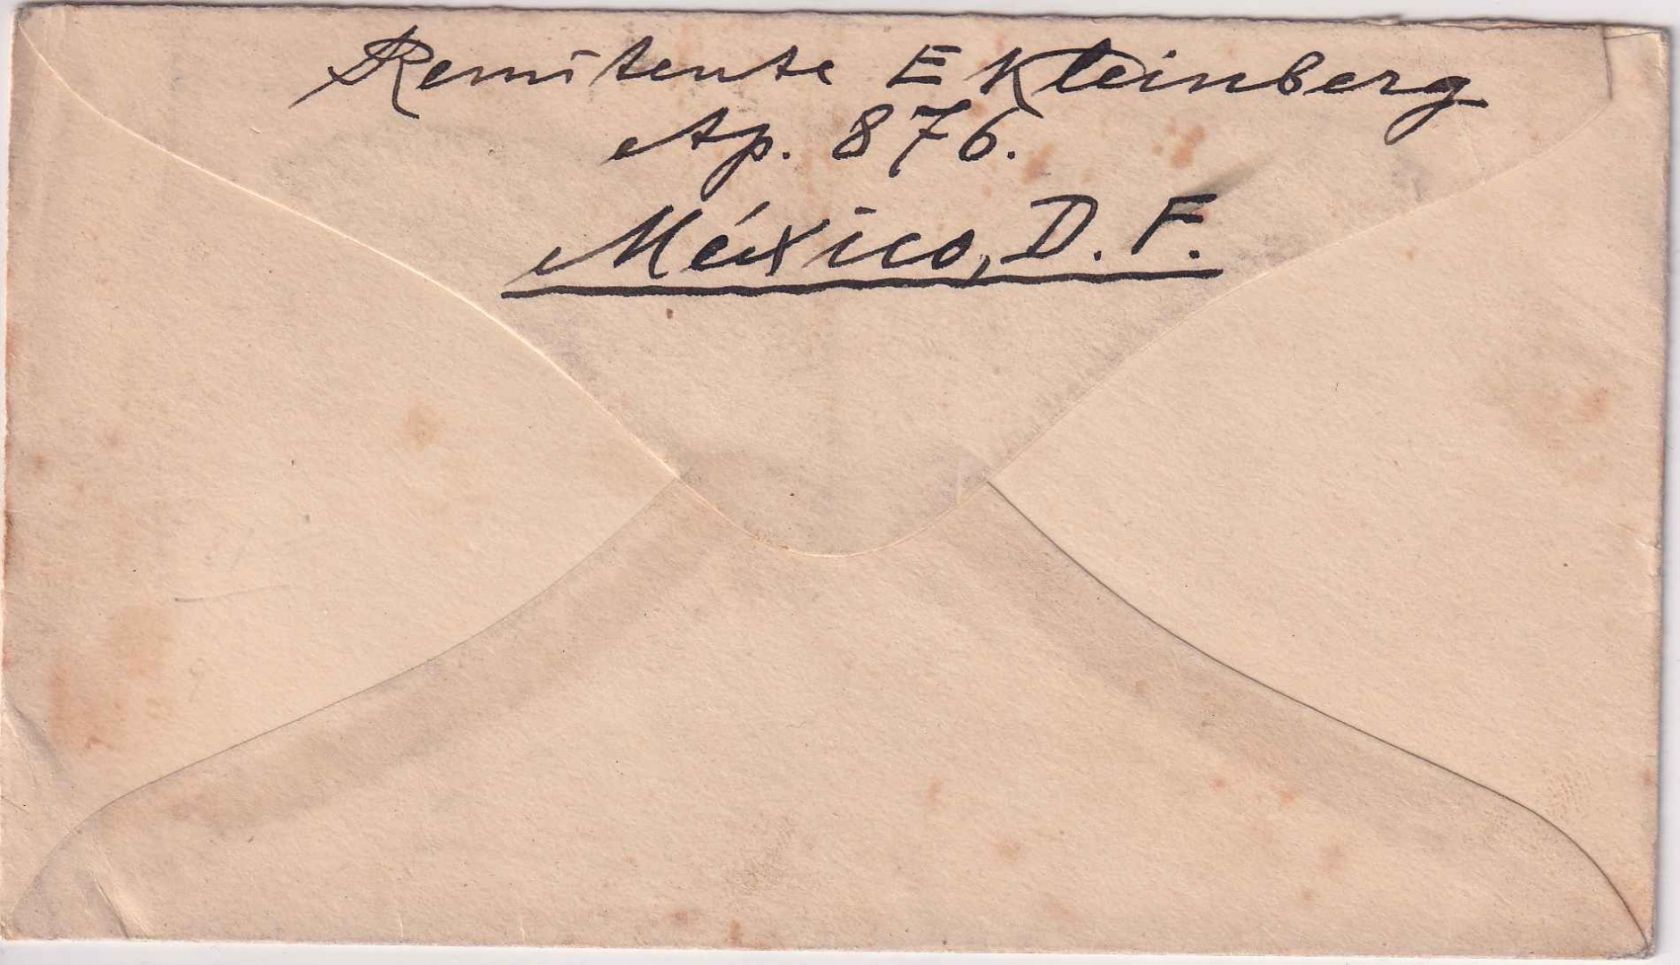 Remitente E Kleinberg
Ap. 876.
México, D. F.